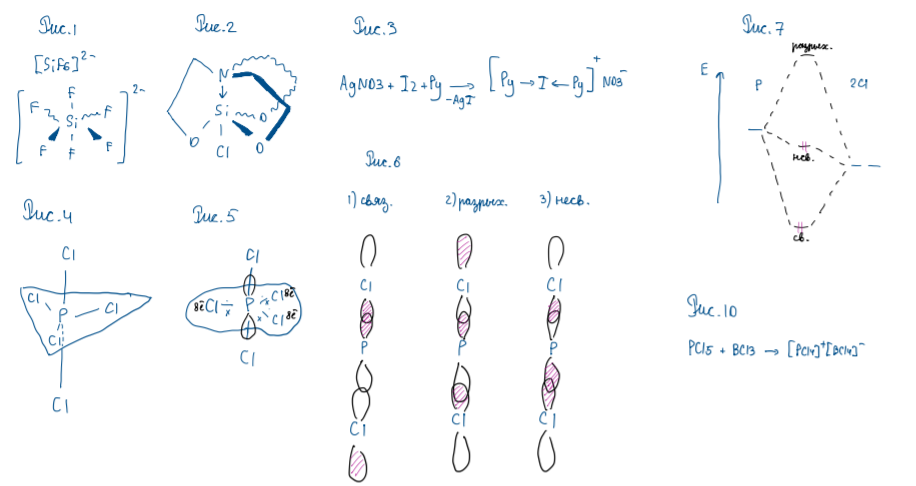 Рис.1
[SiF6]2-
F
F
F
Si
2-
F
F
F
Рис.2
N
Si
O
O
O
Cl
Рис.3
AgNO3 + I2 + Py → [Py → I ← Py]+ NO3-
-AgI
Рис.4
Cl
Cl
P
Cl
Cl
Cl
Рис.5
Cl
8ē Cl
P
Cl 8ē
Cl 8ē
Cl
Рис.6
1) связ.
2) разрых.
3) несв.
Cl
Cl
Cl
P
P
P
Cl
Cl
Cl
Рис.7
разрых.
E
P
2Cl
несв.
св.
Рис.10
PCl5 + BCl3 → [PCl4]+[BCl4]-